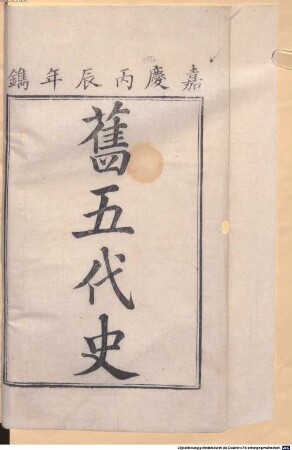 嘉慶丙辰年鐫
舊五代史